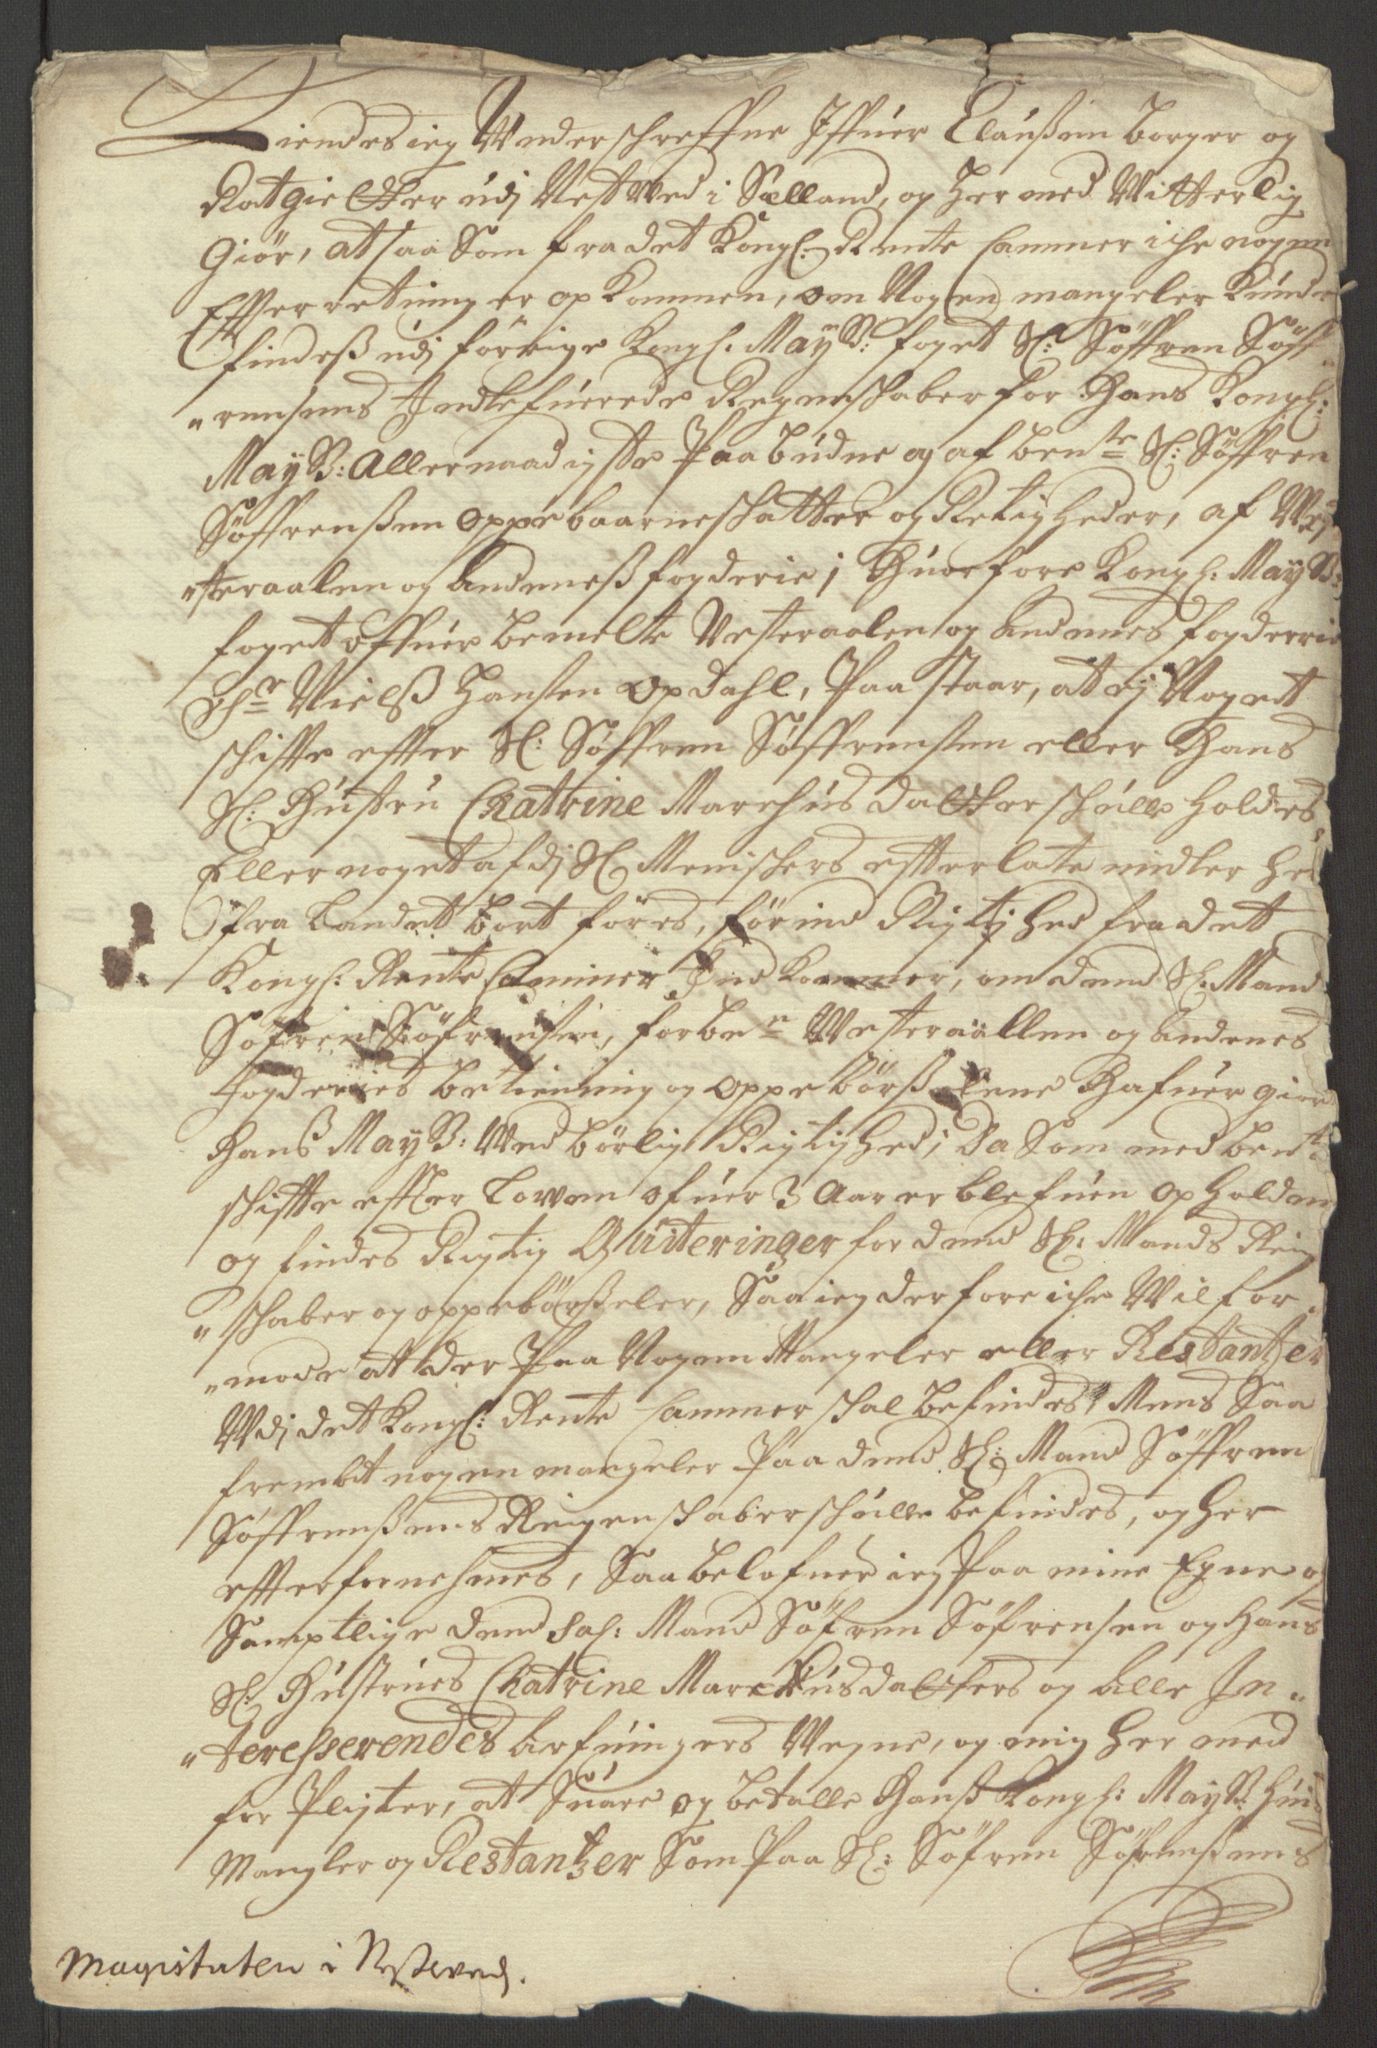 Kiendes ieg Underschreffne Iffuer Claussen borger og
Ratgieltker udj Nestwed i Sælland, og Her med Witterlig
Giör, at saa Som fra det Kongl: Rente Cammer iche nogen
Effterretning er op Kommen, om Nogen mangeler Kunde
findeß udj forrige Kongl: May:ß: foget Sl: Söffren Söff„
„rensens Indlefuerede Regenschaber for Hans Kongl:
May:ß: Allernaadigste Paabudne og af bente Sl: Söffren
Söffrenßen Oppebaarne schatter og Retigheder, af We„
„steraalen og Andeneß fogderie; Huorfore Kongl: May:ß:
foget offuer bemelte Vesteraalen og Andenes fogderie
Sr Nielß Hansen Opdahl, Paastaar, at ej Noget
schiffte effter Sl: Söffren Söffrensen eller Hans
Sl: Hustru Chatrine Marchusdaltter schulle Holdes,
Eller noget af dj Sl Menischers effterlate midler Her
fra Landet bort föres, förind Rigtighed fra det
Kongl: Rente Cammer Ind Kommer, om dend Sl: Mand
Söfren Söfrensen, for ben Westeraallen og Andenes
fogderies betiening og oppebörßelene Hafuer giort
Hans May:ß: Wed börlig Rigtighed; Da Som med bente
schiffte effter Lowen ofuer 3 Aar er blefuen opholden
og findes Rigtig Quiteringer for dend Sl: Mands Reig„
„schaber og oppebörßeler, Saa ieg derfore iche Wil for„
„mode at der Paa Nogen Mangeler eller Restantzer
Wdj det Kongl: Rente Cammer schal befindes, Mens Saa
frembt nogen mangeler Paa dend Sl: Mand Söffren
Söffrenßens Reigenschaber schulle befindes, og Her
effter fornehmes, Saa belofuer ieg Paa mine Egne og
Samptlige dend Sal: Mand Söfren Söfrensen og Hans
Sl: Hustrues Chatrine Marckusdaltters og alle In„
„teresserendes Arfuingers Wegne, og mig Her med
for Pligter, at Suare og betalle Hanß Kongl: May:ß: Huis
Mangler og Restantzer Som Paa Sl: Söfren Söfrenßens
Magistraten i Nestwed.